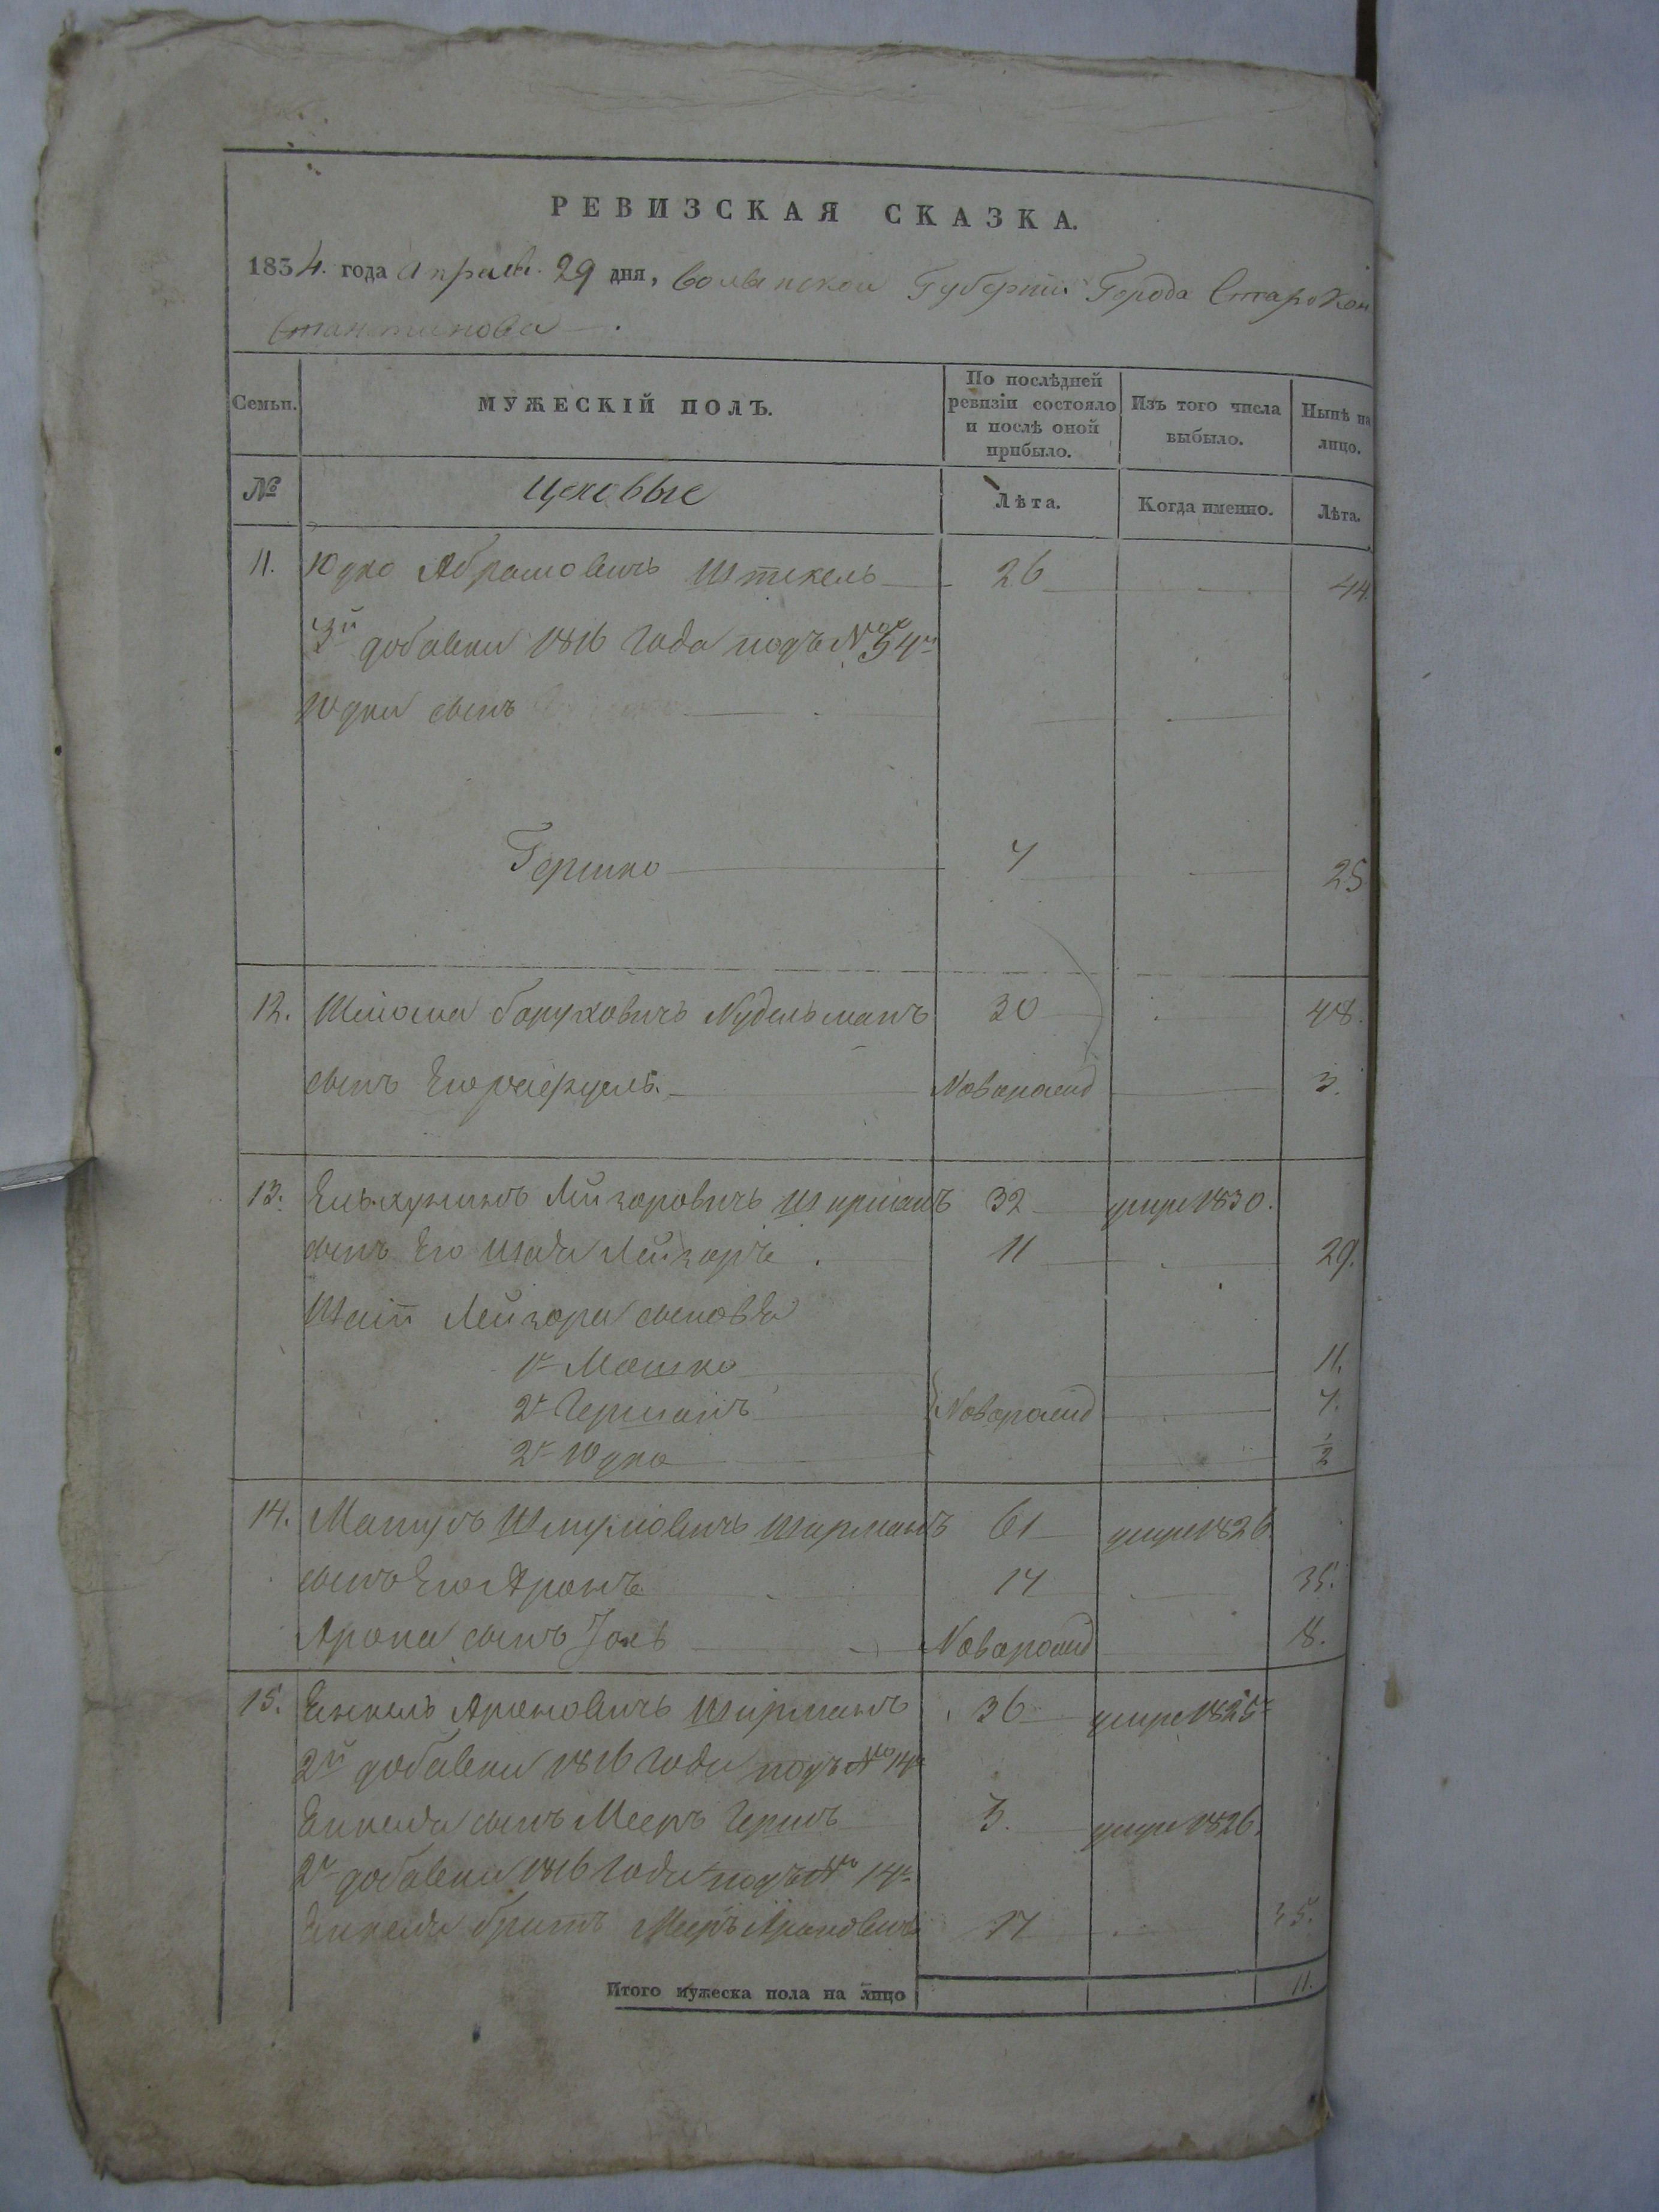 РЕВИЗСКАЯ СКАЗКА.
1834. года Апреля 29 дня, Волынской Губернии Города Старокон
стантинова
Семьи. МУЖЕСКІЙ ПОЛЪ. По послѣдней ревизіи состояло и послѣ оной прибыло. Изъ того числа выбыло. Нынѣ на лицо.
№ Цеховые Лѣта. Когда именно. Лѣта.
11. Юдко Абрамовичъ Штекель 26 44.
3й добавки 1816 года подъ №
Юдки сынъ
Гершко 7 25
12. Шлиома Борухковичъ Нудельманъ 30 48.
сынъ Его Новорожд 3.
13. Лейзоровичъ 32 умре 1830.
сынъ Его Шая Лейзоръ 11 29.
Шаи Лейзора сыновья
1й Мошко 11.
2й Гершонъ Новорожд 7.
2й Юдко ½
14. Матусъ Шмулиовичъ Ширманъ 61 умре 1826
сынъ Его Аронъ 17 35.
Арона сынъ Новорожд 8.
15. Янкель Ароновичъ Ширманъ 36 умре 1825
2й добавки 1816 года подъ № 14
Янкеля сынъ Мееръ Гершъ 3. умре 1826.
2й добавки 1816 года подъ № 14
Янкеля братъ Мееръ Ароновичъ 17 35.
Итого мужеска пола на лицо 11.